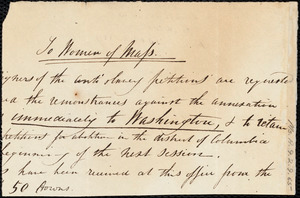 To Women of Mass.
igners of the anti slavery petitions are requeste
d the remonstrances against the annexation
immediately to Washington, & to retain
petitions for abolition in the district of Columbia
beginning of the next session.
s have been received at this office from the
50 towns.